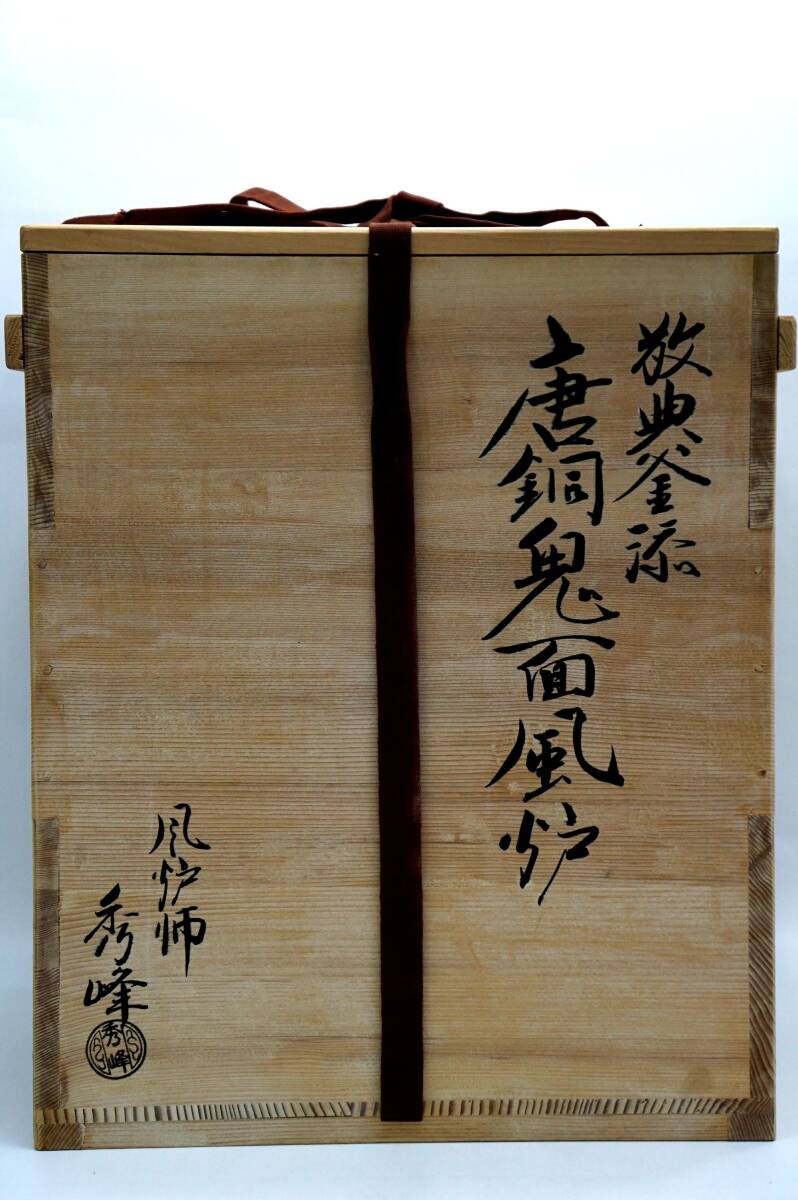 敬典釜添
唐銅鬼面風炉
风炉师
秀峰
秀峰